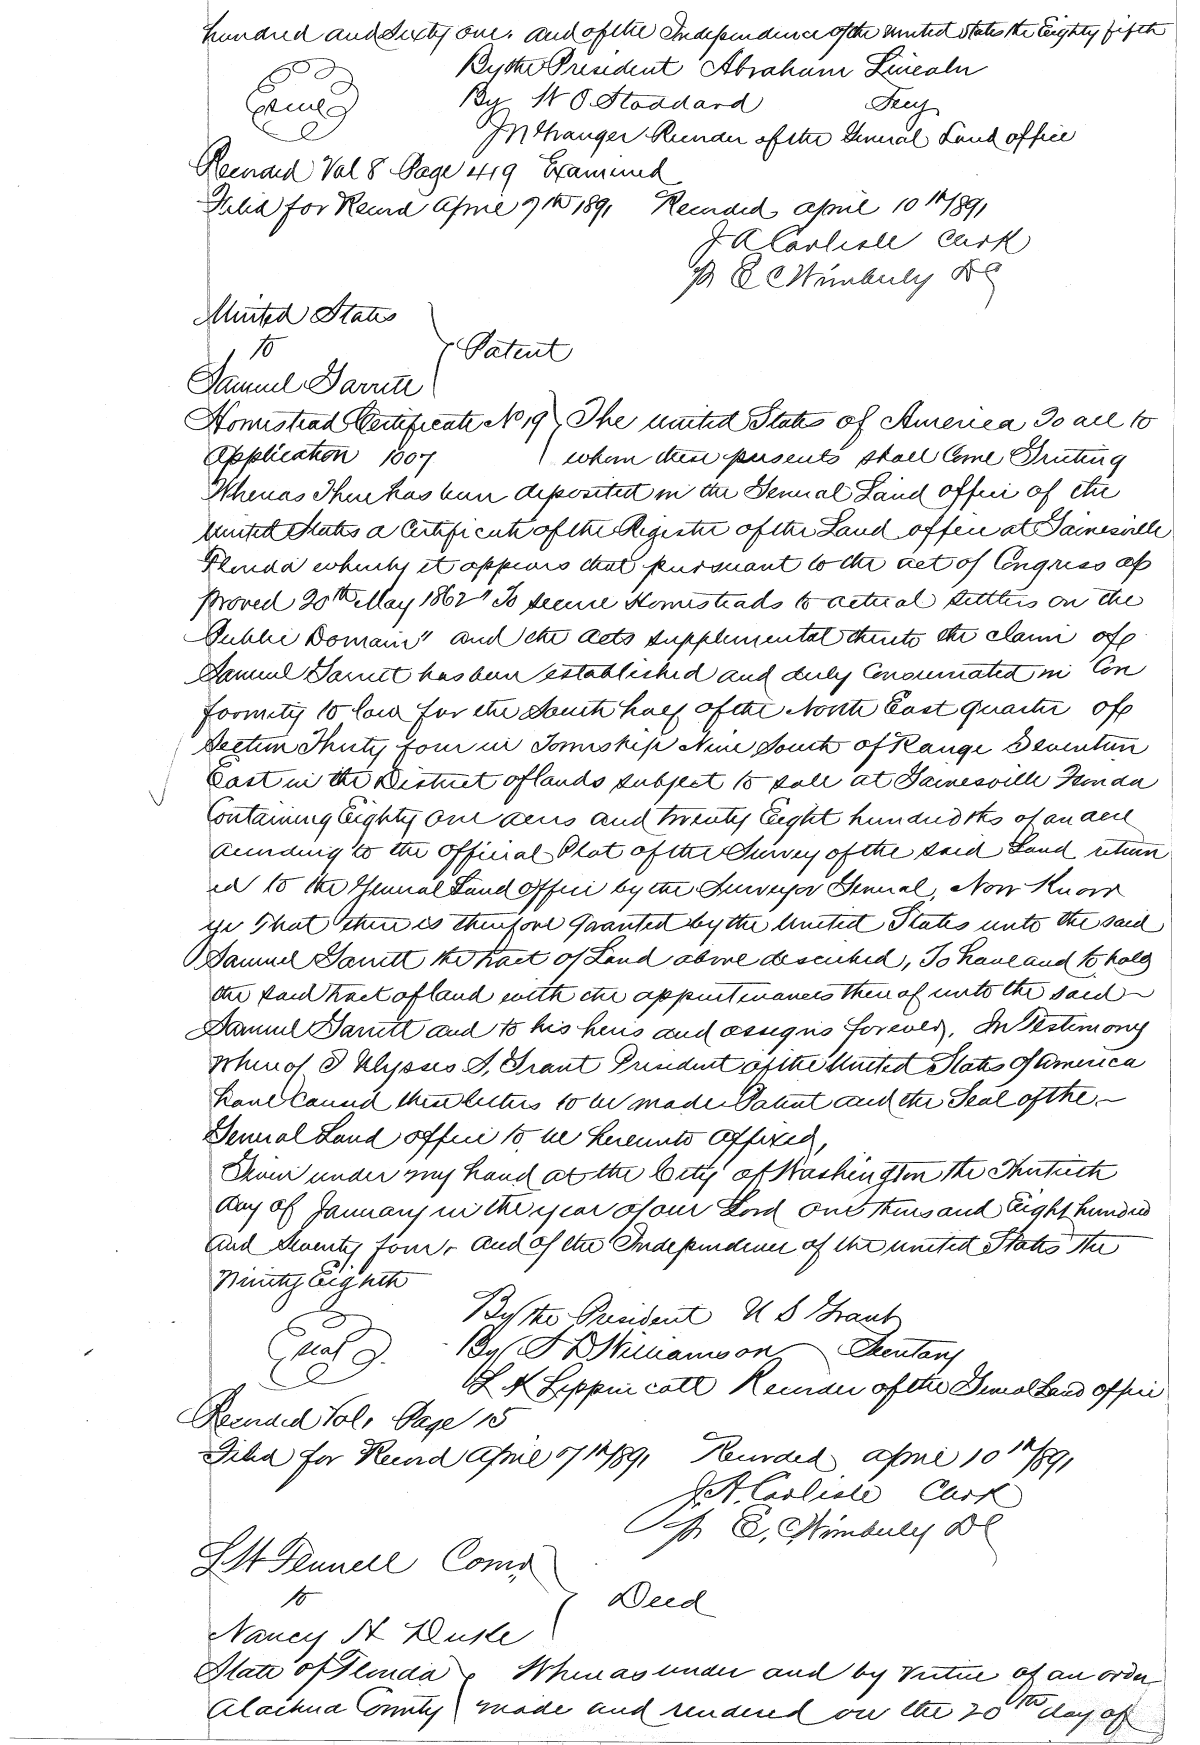 hundred and Sixty one. and of the Independence of the United States the Eighty fifth
By the President Abraham Lincoln
By W O Stoddard Secy
J N Granger Recorder of the General Land office
Recorded Vol 8 Page 419 Examined
Filed for Record April 7th 1891 Recorded April 10th 1891
J A Carlisle Clerk
pr E C Wimberly DC
United States
to
Patent
Samuel Garrett
Homestead Certificate No 19 The United States of America To all to
Application 1007 whom these presents shall Come Greeting
Whereas There has been deposited in the General Land office of the
United States a Certificate of the Register of the Land office at Gainesville
Florida whereby it appears that pursuant to the act of Congress ap
proved 20th May 1862 "To secure Homesteads to actual settlers on the
Public Domain" and the acts supplemental thereto the claim of
Samuel Garrett has been established and duly Consumated in Con
formity to law for the South half of the North East quarter of
Section Thirty four in Township Nine South of Range Seventeen
East in the District of lands subject to sale at Gainesville Florida
Containing Eighty One acres and twenty Eight hundredths of an acre
according to the official Plat of the Survey of the said Land return
ed to the General Land office by the Surveyor General, Now Know
ye That there is therefore granted by the United States unto the said
Samuel Garrett the tract of Land above described, To have and to hold
the said tract of land with the appurtenances thereof unto the said
Samuel Garrett and to his heirs and assigns forever. In Testimony
whereof I Ulysses S. Grant President of the United States of America
have Caused these letters to be made Patent and the Seal of the
General Land office to be hereunto affixed,
Given under my hand at the City of Washington the Thirtieth
day of January in the year of our Lord one thousand Eight hundred
and Seventy four, and of the Independence of the United States the
Ninety Eighth
By the President U S Grant
Seal By S D Williamson Secretary
L K Lippincott Recorder of the General Land office
Recorded Vol, Page 15
Filed for Record April 7th 1891 Recorded April 10th 1891
J. A. Carlisle Clerk
pr E. C Wimberly DC
L H Fennell Comr
to
Deed
Nancy H Duke
State of Florida Whereas under and by virtue of an order
Alachua County made and rendered on the 20th day of